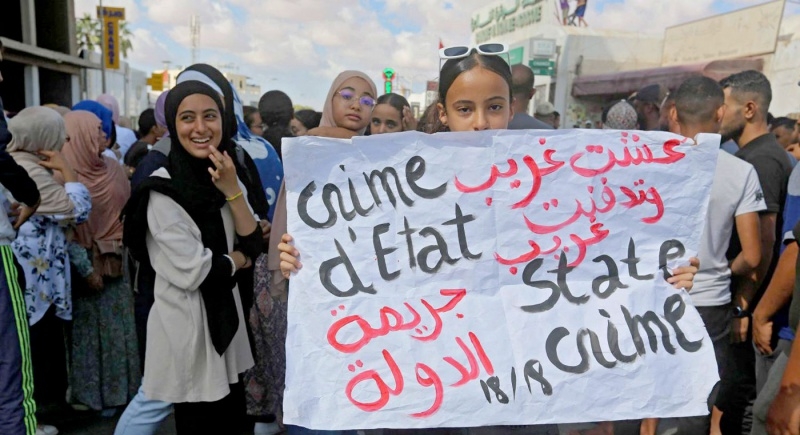 crime
d'Etat
عشت غريب
وتدفنت
غريب
State
crime
جريمة
الدولة
18/18